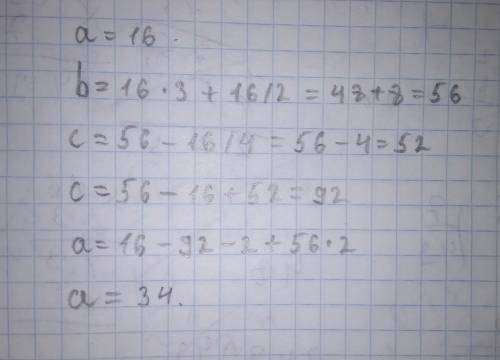 a = 16.
b = 16·3 + 16/2 = 48+8 = 56
c = 56 - 16/4 = 56 - 4 = 52
c = 56 - 16 + 52 = 92
a = 16 - 92 - 2 + 56·2
a = 34.